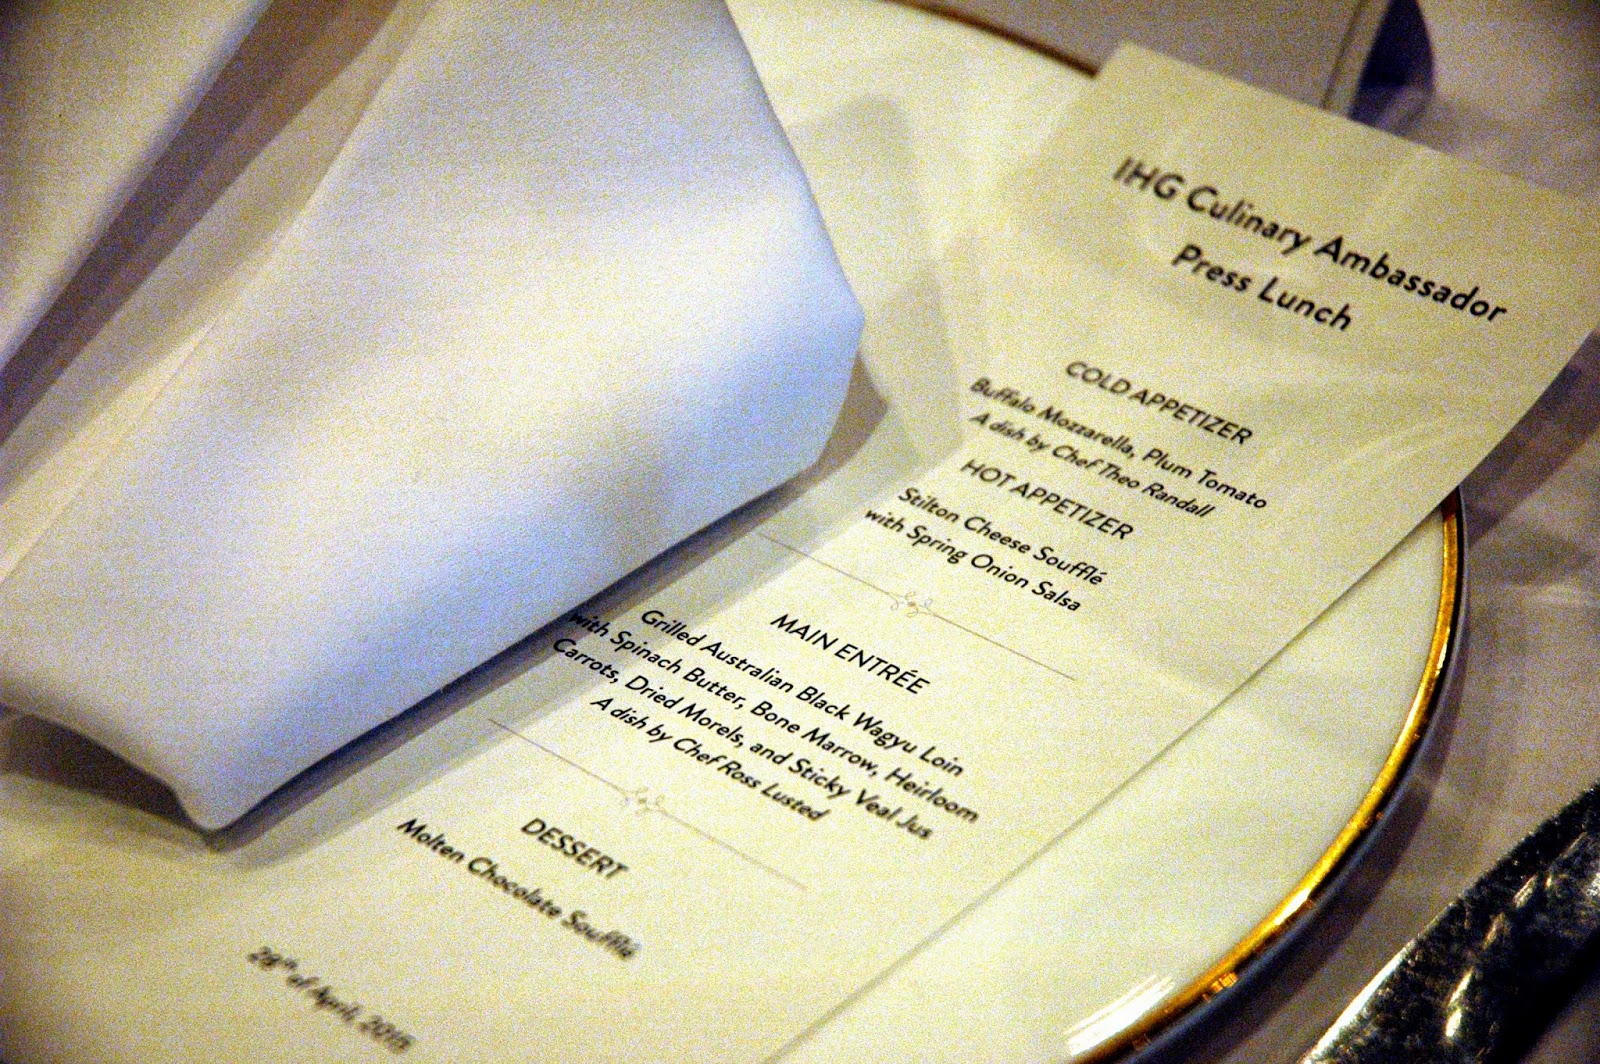 IHG Culinary Ambassador
Press Lunch
COLD APPETIZER
Buffalo Mozzarella, Plum Tomato
A dish by Chef Theo Randall
HOT APPETIZER
Stilton Cheese Soufflé
with Spring Onion Salsa
MAIN ENTRÉE
Grilled Australian Black Wagyu Loin
with Spinach Butter, Bone Marrow, Heirloom
Carrots, Dried Morels, and Sticky Veal Jus
A dish by Chef Ross Lusted
DESSERT
Molten Chocolate Soufflé
of April, 2015